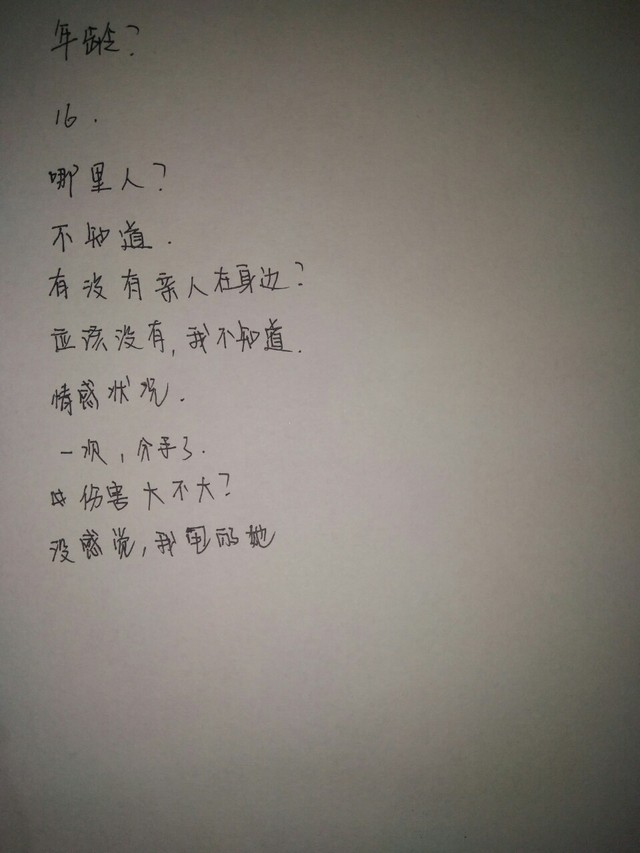 年龄？
16.
哪里人？
不知道.
有没有亲人在身边？
应该没有,我不知道.
情感状况.
一次,分手了.
伤害大不大？
没感觉,我甩的她